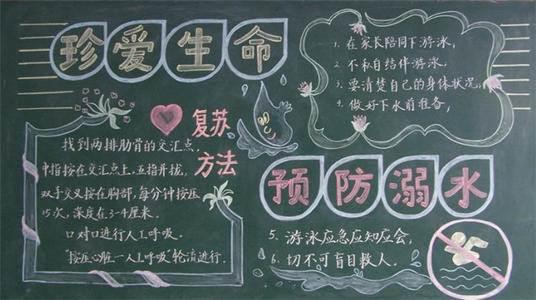 珍爱生命
1. 在家长陪同下游泳,
2. 不私自结伴游泳.
3. 要清楚自己的身体状况,
4. 做好下水前准备,
复苏
方法
找到两排肋骨的交汇点.
中指按在交汇点上.五指并拢,
双手交叉按在胸部,每分钟按压
15次,深度在3-4厘米.
口对口进行人工呼吸.
"按压心脏一人工呼吸"轮流进行.
预防溺水
5. 游泳应急应知应会,
6. 切不可盲目救人.